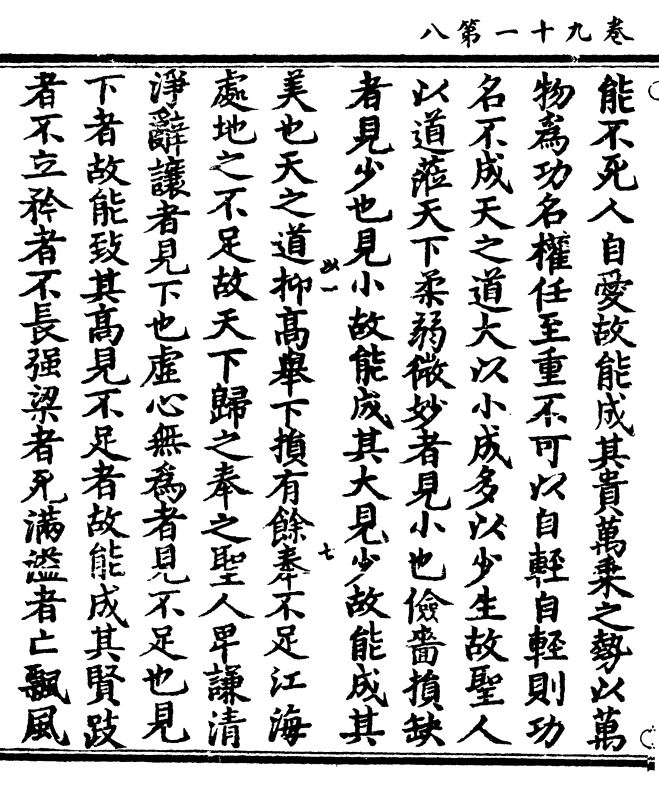 卷九十一第八
能不死人自愛故能成其貴萬乘之勢以萬
物爲功名權任至重不可以自輕自輕則功
名不成天之道大以小成多以少生故聖人
以道蒞天下柔弱微妙者見小也儉嗇損缺
者見少也見小故能成其大見少故能成其
美也天之道抑高舉下損有餘奉不足江海
處地之不足故天下歸之奉之聖人卑謙清
淨辭讓者見下也虛心無爲者見不足也見
下者故能致其高見不足者故能成其賢跂
者不立矜者不長强梁者死滿溢者亡飄風